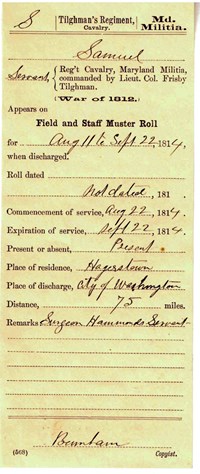 S
Tilghman's Regiment,
Cavalry.
Md.
Militia.
Samuel
Servant,
Reg't Cavalry, Maryland Militia,
commanded by Lieut. Col. Frisby
Tilghman.
(War of 1812.)
Appears on
Field and Staff Muster Roll
for Aug 11 to Sept 22, 1814,
when discharged.
Roll dated
Not dated, 181
Commencement of service, Aug 22, 1814.
Expiration of service, Sept 22, 1814.
Present or absent, Present
Place of residence, Hagerstown
Place of discharge, City of Washington
Distance, 75 miles.
Remarks: Surgeon Hammonds Servant
Burnham
(568) Copyist.